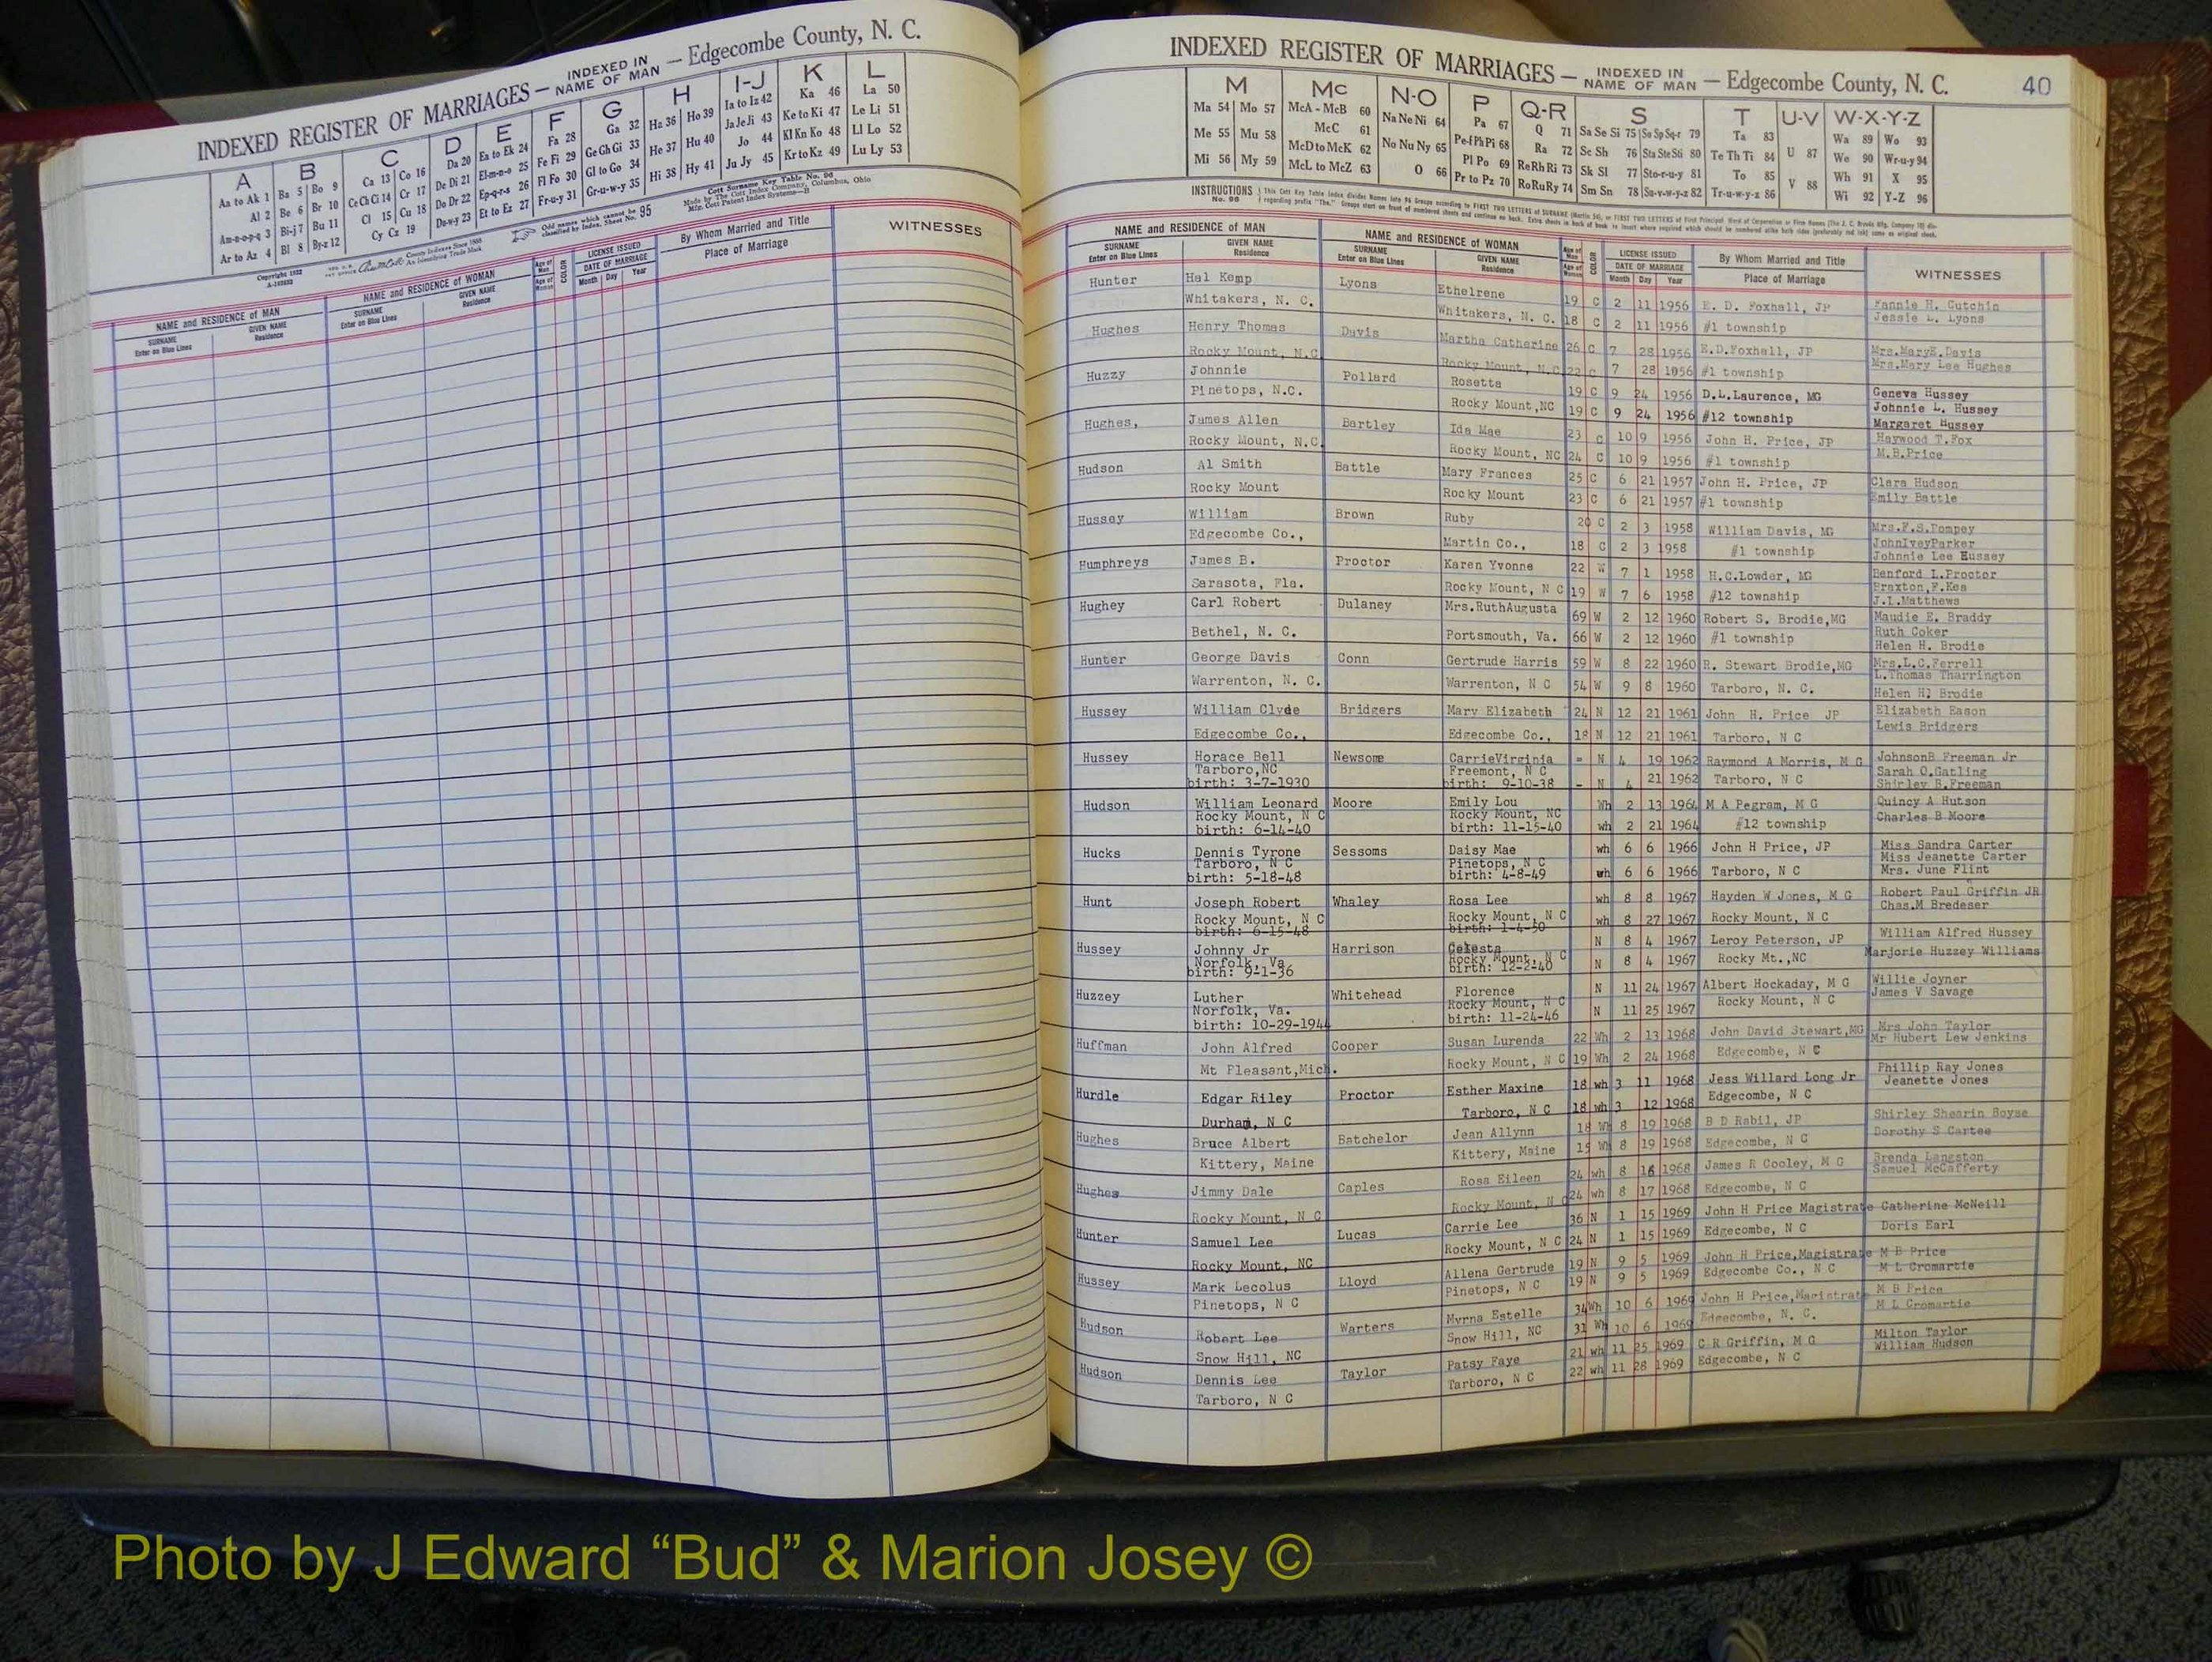 INDEXED REGISTER OF MARRIAGES — INDEXED IN NAME OF MAN — Edgecombe County, N. C.
A B C D E F G H I-J K L
Aa to Ak 1 Ba 5 Bo 9 Ca 13 Co 16 Da 20 Ea to Ek 24 Fa 28 Ga 32 Ha 36 Ho 39 Ia to Iz 42 Ka 46 La 50
Al 2 Be 6 Br 10 Ce Ch Ci 14 Cr 17 De Di 21 El-m-n-o 25 Fe Fi 29 Ge Gh Gi 33 He 37 Hu 40 Ja Je Ji 43 Ke to Ki 47 Le Li 51
Am-n-o-p-q 3 Bi-j 7 Bu 11 Cl 15 Cu 18 Do Dr 22 Ep-q-r-s 26 Fl Fo 30 Gl to Go 34 Hi 38 Hy 41 Jo 44 Kl Kn Ko 48 Ll Lo 52
Ar to Az 4 Bl 8 By-z 12 Cy Cz 19 Du-w-y 23 Et to Ez 27 Fr-u-y 31 Gr-u-w-y 35 Ju Jy 45 Kr to Kz 49 Lu Ly 53
Cott Surname Key Table No. 96
Made by The Cott Index Company, Columbus, Ohio
Mfg. Cott Patent Index Systems—B
Odd names which cannot be classified by Index, Sheet No. 95
Copyright 1932
County Indexes Since 1888
An Identifying Trade Mark
NAME and RESIDENCE of MAN
SURNAME Enter on Blue Lines
GIVEN NAME Residence
NAME and RESIDENCE of WOMAN
SURNAME Enter on Blue Lines
GIVEN NAME Residence
Age of Man
Age of Woman
COLOR
LICENSE ISSUED
DATE OF MARRIAGE
Month Day Year
By Whom Married and Title
Place of Marriage
WITNESSES
INDEXED REGISTER OF MARRIAGES — INDEXED IN NAME OF MAN — Edgecombe County, N. C. 40
M Mc N-O P Q-R S T U-V W-X-Y-Z
Ma 54 Mo 57 McA - McB 60 Na Ne Ni 64 Pa 67 Q 71 Sa Se Si 75 So Sp Sq-r 79 Ta 83 U 87 Wa 89 Wo 93
Me 55 Mu 58 McC 61 No Nu Ny 65 Pe-f Ph Pi 68 Ra 72 Sc Sh 76 Sta Ste Sti 80 Te Th Ti 84 V 88 We 90 Wr-u-y 94
Mi 56 My 59 McD to McK 62 O 66 Pl Po 69 Re Rh Ri 73 Sk Sl 77 Sto-r-u-y 81 To 85 Wh 91 X 95
McL to McZ 63 Pr to Pz 70 Ro Ru Ry 74 Sm Sn 78 Su-v-w-y-z 82 Tr-u-w-y-z 86 Wi 92 Y-Z 96
INSTRUCTIONS No. 96
NAME and RESIDENCE of MAN
SURNAME Enter on Blue Lines
GIVEN NAME Residence
NAME and RESIDENCE of WOMAN
SURNAME Enter on Blue Lines
GIVEN NAME Residence
Age of Man
Age of Woman
COLOR
LICENSE ISSUED
DATE OF MARRIAGE
Month Day Year
By Whom Married and Title
Place of Marriage
WITNESSES
Hunter Hal Kemp Lyons Ethelrene 19 C 2 11 1956 E. D. Foxhall, JP Fannie H. Cutchin
Whitakers, N. C. Whitakers, N. C. 18 C 2 11 1956 #1 township Jessie L. Lyons
Hughes Henry Thomas Davis Martha Catherine 26 C 7 28 1956 E.D.Foxhall, JP Mrs.MaryE.Davis
Rocky Mount, N.C Rocky Mount, N.C 22 C 7 28 1956 #1 township Mrs.Mary Lee Hughes
Huzzy Johnnie Pollard Rosetta 19 C 9 24 1956 D.L.Laurence, MG Geneva Hussey
Pinetops, N.C. Rocky Mount,NC 19 C 9 24 1956 #12 township Johnnie L. Hussey
Margaret Hussey
Hughes, James Allen Bartley Ida Mae 23 C 10 9 1956 John H. Price, JP Haywood T.Fox
Rocky Mount, N.C. Rocky Mount, NC 24 C 10 9 1956 #1 township M.B.Price
Hudson Al Smith Battle Mary Frances 25 C 6 21 1957 John H. Price, JP Clara Hudson
Rocky Mount Rocky Mount 23 C 6 21 1957 #1 township Emily Battle
Hussey William Brown Ruby 20 C 2 3 1958 William Davis, MG Mrs.F.S.Pompey
Edgecombe Co., Martin Co., 18 C 2 3 1958 #1 township JohnIveyParker
Johnnie Lee Hussey
Humphreys James B. Proctor Karen Yvonne 22 W 7 1 1958 H.C.Lowder, MG Benford L.Proctor
Sarasota, Fla. Rocky Mount, N C 19 W 7 6 1958 #12 township Braxton,F.Kea
J.L.Matthews
Hughey Carl Robert Dulaney Mrs.RuthAugusta 69 W 2 12 1960 Robert S. Brodie,MG Maudie E. Braddy
Bethel, N. C. Portsmouth, Va. 66 W 2 12 1960 #1 township Ruth Coker
Helen H. Brodie
Hunter George Davis Conn Gertrude Harris 59 W 8 22 1960 R. Stewart Brodie,MG Mrs.L.C.Ferrell
Warrenton, N. C. Warrenton, N C 54 W 9 8 1960 Tarboro, N. C. L.Thomas Tharrington
Helen H. Brodie
Hussey William Clyde Bridgers Mary Elizabeth 24 N 12 21 1961 John H. Price JP Elizabeth Eason
Edgecombe Co., Edgecombe Co., 18 N 12 21 1961 Tarboro, N C Lewis Bridgers
Hussey Horace Bell Newsome CarrieVirginia - N 4 19 1962 Raymond A Morris, M G JohnsonB Freeman Jr
Tarboro,NC Freemont, N C Sarah O.Gatling
birth: 3-7-1930 birth: 9-10-38 - N 4 21 1962 Tarboro, N C Shirley B.Freeman
Hudson William Leonard Moore Emily Lou Wh 2 13 1964 M A Pegram, M G Quincy A Hutson
Rocky Mount, N C Rocky Mount, NC Charles B Moore
birth: 6-14-40 birth: 11-15-40 wh 2 21 1964 #12 township
Hucks Dennis Tyrone Sessoms Daisy Mae wh 6 6 1966 John H Price, JP Miss Sandra Carter
Tarboro, N C Pinetops, N C Miss Jeanette Carter
birth: 5-18-48 birth: 4-8-49 wh 6 6 1966 Tarboro, N C Mrs. June Flint
Hunt Joseph Robert Whaley Rosa Lee wh 8 8 1967 Hayden W Jones, M G Robert Paul Griffin JR
Rocky Mount, N C Rocky Mount, N C wh 8 27 1967 Rocky Mount, N C Chas.M Bredeser
birth: 6-15-48 birth: 1-4-50
Hussey Johnny Jr Harrison Celesta N 8 4 1967 Leroy Peterson, JP William Alfred Hussey
Norfolk, Va Rocky Mount, N C
birth: 9-1-36 birth: 12-2-40 N 8 4 1967 Rocky Mt.,NC Marjorie Huzzey Williams
Huzzey Luther Whitehead Florence N 11 24 1967 Albert Hockaday, M G Willie Joyner
Norfolk, Va. Rocky Mount, N C Rocky Mount, N C James V Savage
birth: 10-29-1944 birth: 11-24-46 N 11 25 1967
Huffman John Alfred Cooper Susan Lurenda 22 Wh 2 13 1968 John David Stewart,MG Mrs John Taylor
Mt Pleasant,Mich. Rocky Mount, N C 19 Wh 2 24 1968 Edgecombe, N C Mr Hubert Lew Jenkins
Hurdle Edgar Riley Proctor Esther Maxine 18 wh 3 11 1968 Jess Willard Long Jr Phillip Ray Jones
Durham, N C Tarboro, N C 18 wh 3 12 1968 Edgecombe, N C Jeanette Jones
Hughes Bruce Albert Batchelor Jean Allynn 18 Wh 8 19 1968 B D Rabil, JP Shirley Shearin Boyse
Kittery, Maine Kittery, Maine 15 Wh 8 19 1968 Edgecombe, N C Dorothy S Cartee
Hughes Jimmy Dale Caples Rosa Eileen 24 wh 8 16 1968 James R Cooley, M G Brenda Langston
Rocky Mount, N C Rocky Mount, N C 24 wh 8 17 1968 Edgecombe, N C Samuel McCafferty
Hunter Samuel Lee Lucas Carrie Lee 36 N 1 15 1969 John H Price Magistrate Catherine McNeill
Rocky Mount, NC Rocky Mount, N C 24 N 1 15 1969 Edgecombe, N C Doris Earl
Hussey Mark Lecolus Lloyd Allena Gertrude 19 N 9 5 1969 John H Price,Magistrate M B Price
Pinetops, N C Pinetops, N C 19 N 9 5 1969 Edgecombe Co., N C M L Cromartie
Hudson Robert Lee Warters Myrna Estelle 34 Wh 10 6 1969 John H Price,Magistrate M B Price
Snow Hill, NC Snow Hill, NC 31 Wh 10 6 1969 Edgecombe, N. C. M L Cromartie
Hudson Dennis Lee Taylor Patsy Faye 21 wh 11 25 1969 C R Griffin, M G Milton Taylor
Tarboro, N C Tarboro, N C 22 wh 11 28 1969 Edgecombe, N C William Hudson
Photo by J Edward “Bud” & Marion Josey ©